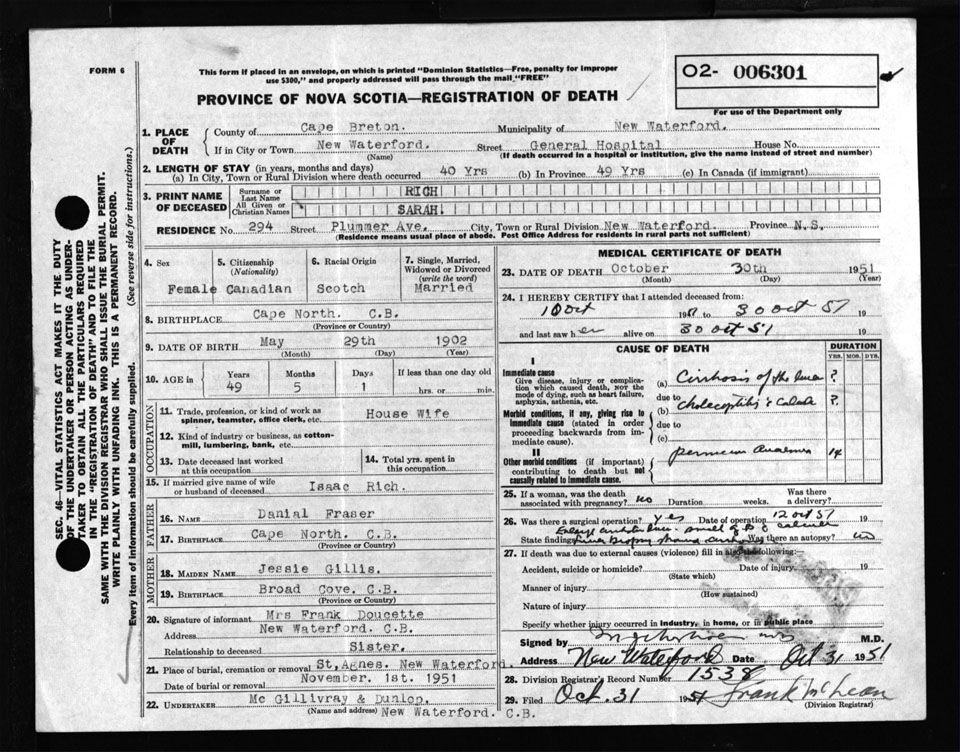 FORM 6
This form if placed in an envelope, on which is printed "Dominion Statistics—Free, penalty for improper
use $300," and properly addressed will pass through the mail "FREE"
O2- 006301
For use of the Department only
PROVINCE OF NOVA SCOTIA—REGISTRATION OF DEATH
1. PLACE OF DEATH
County of Cape Breton. Municipality of New Waterford.
If in City or Town New Waterford. Street General Hospital House No.
(Name) (If death occurred in a hospital or institution, give the name instead of street and number)
2. LENGTH OF STAY (in years, months and days)
(a) In City, Town or Rural Division where death occurred 40 Yrs (b) In Province 49 Yrs (c) In Canada (if immigrant)
3. PRINT NAME OF DECEASED
Surname or Last Name RICH
All Given or Christian Names SARAH.
RESIDENCE No. 294 Street Plummer Ave. City, Town or Rural Division New Waterford. Province N.S.
(Residence means usual place of abode. Post Office Address for residents in rural parts not sufficient)
4. Sex
Female
5. Citizenship
(Nationality)
Canadian
6. Racial Origin
Scotch
7. Single, Married, Widowed or Divorced
(write the word)
Married
8. BIRTHPLACE Cape North. C.B.
(Province or Country)
9. DATE OF BIRTH May 29th 1902
(Month) (Day) (Year)
10. AGE in Years Months Days If less than one day old
49 5 1 hrs. or min.
OCCUPATION
11. Trade, profession, or kind of work as
spinner, teamster, office clerk, etc. House Wife
12. Kind of industry or business, as cotton-
mill, lumbering, bank, etc.
13. Date deceased last worked
at this occupation
14. Total yrs. spent in
this occupation
15. If married give name of wife
or husband of deceased Isaac Rich.
FATHER
16. NAME Danial Fraser
17. BIRTHPLACE Cape North. C.B.
(Province or Country)
MOTHER
18. MAIDEN NAME Jessie Gillis.
19. BIRTHPLACE Broad Cove. C.B.
(Province or Country)
20. Signature of informant Mrs Frank Doucette
Address New Waterford. C.B.
Relationship to deceased Sister.
21. Place of burial, cremation or removal St,Agnes. New Waterford.
Date of burial or removal November. 1st. 1951
22. UNDERTAKER Mc Gillivray & Dunlop.
(Name and address) New Waterford. C.B.
MEDICAL CERTIFICATE OF DEATH
23. DATE OF DEATH October 30th 1951
(Month) (Day) (Year)
24. I HEREBY CERTIFY that I attended deceased from:
10 Oct 19 to 30 Oct 51 19
and last saw her alive on 30 Oct 51 19
CAUSE OF DEATH
DURATION
YRS. MOS. DYS.
I
Immediate cause
Give disease, injury or complica-
tion which caused death, NOT the
mode of dying, such as heart failure,
asphyxia, asthenia, etc.
(a) Cirrhosis of the liver ?
due to
Morbid conditions, if any, giving rise to
immediate cause (stated in order
proceeding backwards from im-
mediate cause).
(b) ?
due to
(c)
II
Other morbid conditions (if important)
contributing to death but not
causally related to immediate cause.
14
25. If a woman, was the death
associated with pregnancy? no Duration weeks. Was there
a delivery?
26. Was there a surgical operation? Yes Date of operation 12 Oct 51 19
State findings Was there an autopsy? no
27. If death was due to external causes (violence) fill in also the following:
Accident, suicide or homicide? Date of injury 19
(State which)
Manner of injury
(How sustained)
Nature of injury
Specify whether injury occurred in industry, in home, or in public place
Signed by M.D.
Address New Waterford Date Oct 31 1951
28. Division Registrar's Record Number 1538
29. Filed Oct. 31 1951 Frank McLean
(Division Registrar)
SEC. 46—VITAL STATISTICS ACT MAKES IT THE DUTY
OF THE UNDERTAKER OR PERSON ACTING AS UNDER-
TAKER TO OBTAIN ALL THE PARTICULARS REQUIRED
IN THE "REGISTRATION OF DEATH" AND TO FILE THE
SAME WITH THE DIVISION REGISTRAR WHO SHALL ISSUE THE BURIAL PERMIT.
WRITE PLAINLY WITH UNFADING INK. THIS IS A PERMANENT RECORD.
Every item of information should be carefully supplied. (See reverse side for instructions.)